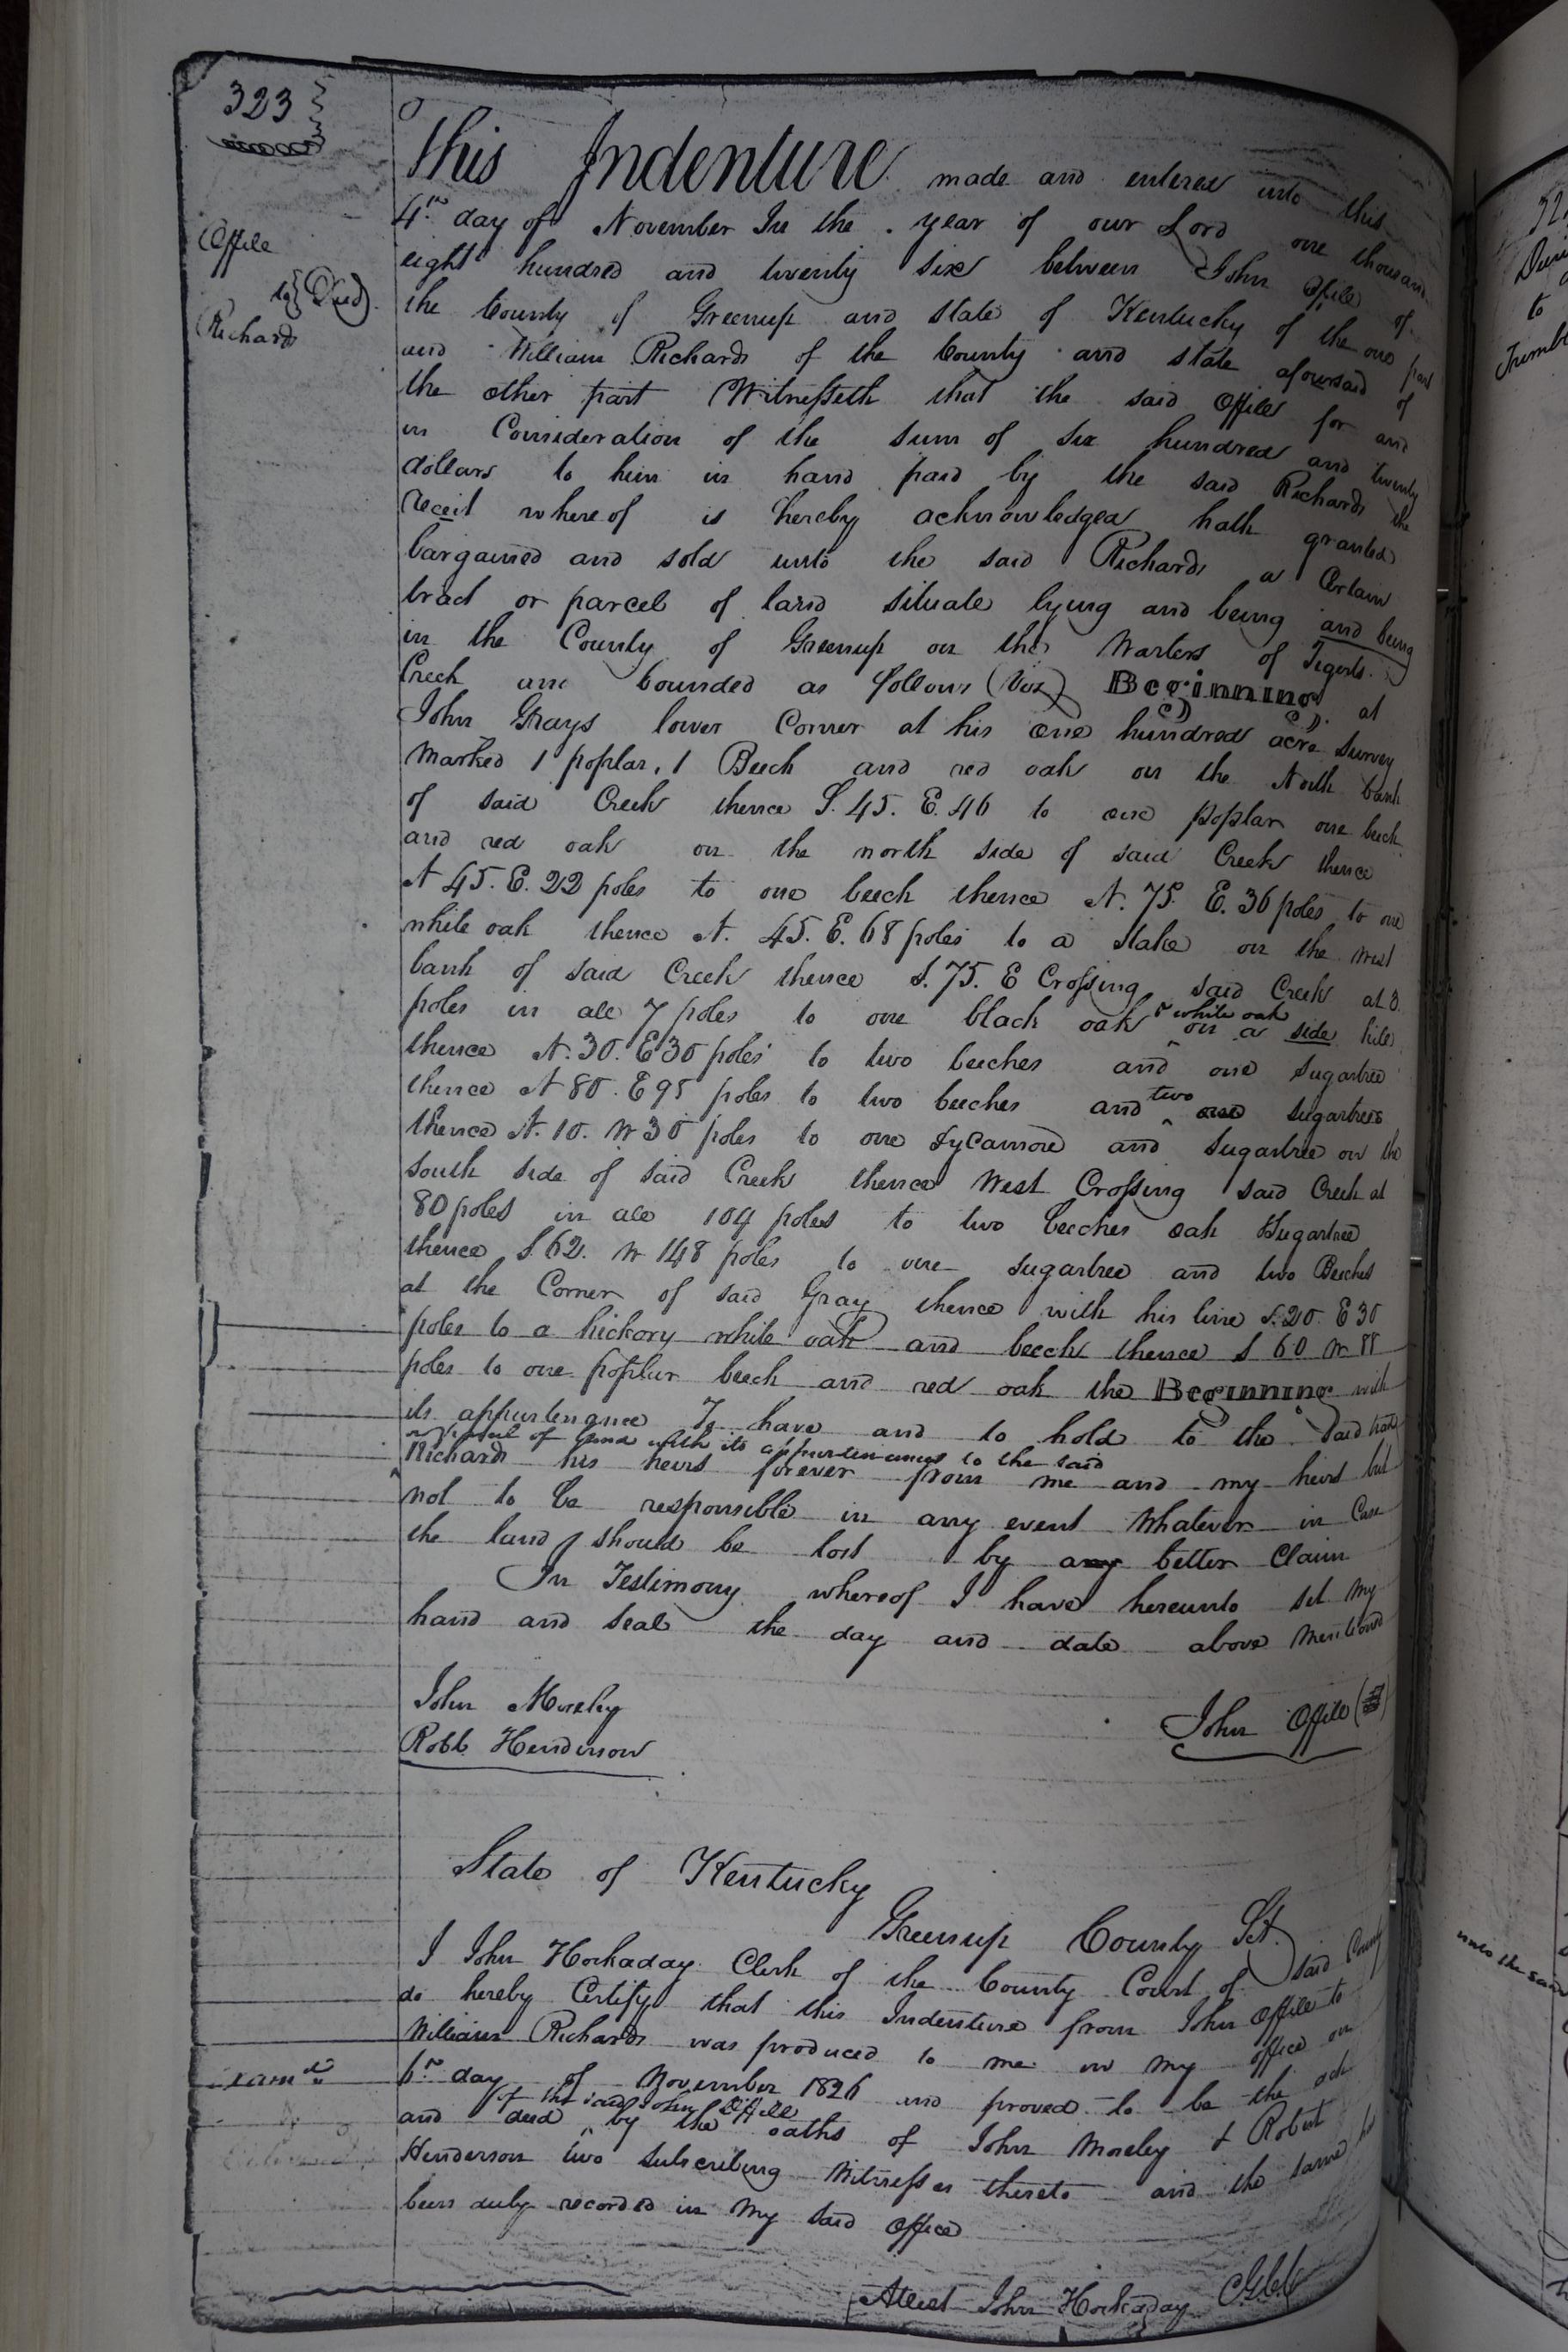 323
Offile
to } Deed
Richards
This Indenture made and entered into this
4th day of November In the year of our Lord one thousand
eight hundred and twenty six between John Offile of
the County of Greenup and state of Kentucky of the one part
and William Richards of the County and state aforesaid of
the other part Witnesseth that the said Offile for and
in Consideration of the sum of six hundred and twenty
dollars to him in hand paid by the said Richards the
receit whereof is hereby acknowledged hath granted
bargained and sold unto the said Richards a Certain
tract or parcel of land situate lying and being and being
in the County of Greenup on the Warters of Tigerts
Creek and bounded as follows (Viz) Beginning at
John Grays lower Corner at his one hundred acre Survey
Marked 1 poplar, 1 Beech and red oak on the North bank
of said Creek thence S. 45. E. 46 to one poplar one beech
and red oak on the north side of said Creek thence
N 45. E. 22 poles to one beech thence N. 75. E. 36 poles to one
white oak thence N. 45. E. 68 poles to a Stake on the west
bank of said Creek thence S. 75. E Crossing said Creek at 3
poles in all 7 poles to one black oak & white oak on a side hile
thence N. 30. E 30 poles to two beeches and one Sugartree
thence N 80. E 95 poles to two beeches and two one sugartrees
thence N. 10. W 30 poles to one Sycamore and Sugartree on the
south side of said Creek thence West Crossing said Creek at
80 poles in all 104 poles to two beeches oak Sugartree
thence S. 62. W 148 poles to one sugartree and two Beeches
at the Corner of said Gray thence with his line S. 20. E 30
poles to a hickory white oak and beech thence S 60 W 88
poles to one poplar beech and red oak the Beginning with
its appurtenance To have and to hold to the Said
of land with its appurtenances to the said
Richards his heirs forever from me and my heirs but
not to be responsible in any event Whatever in Case
the land should be lost by any better Claim
In Testimony whereof I have hereunto set My
hand and seal the day and date above Mentioned
John Morley
Robb Henderson
John Offile
State of Kentucky
Greenup County Sct.
I John Hockaday Clerk of the County Court of Said County
do hereby Certify that this Indenture from John Offile to
William Richards was produced to me in my office on
6th day of November 1826 and proved to be the act
and deed of the said John Offile by the oaths of John Morley & Robert
Henderson two Subscribing Witnesses thereto and the same
been duly recorded in My said Office
Attest John Hockaday